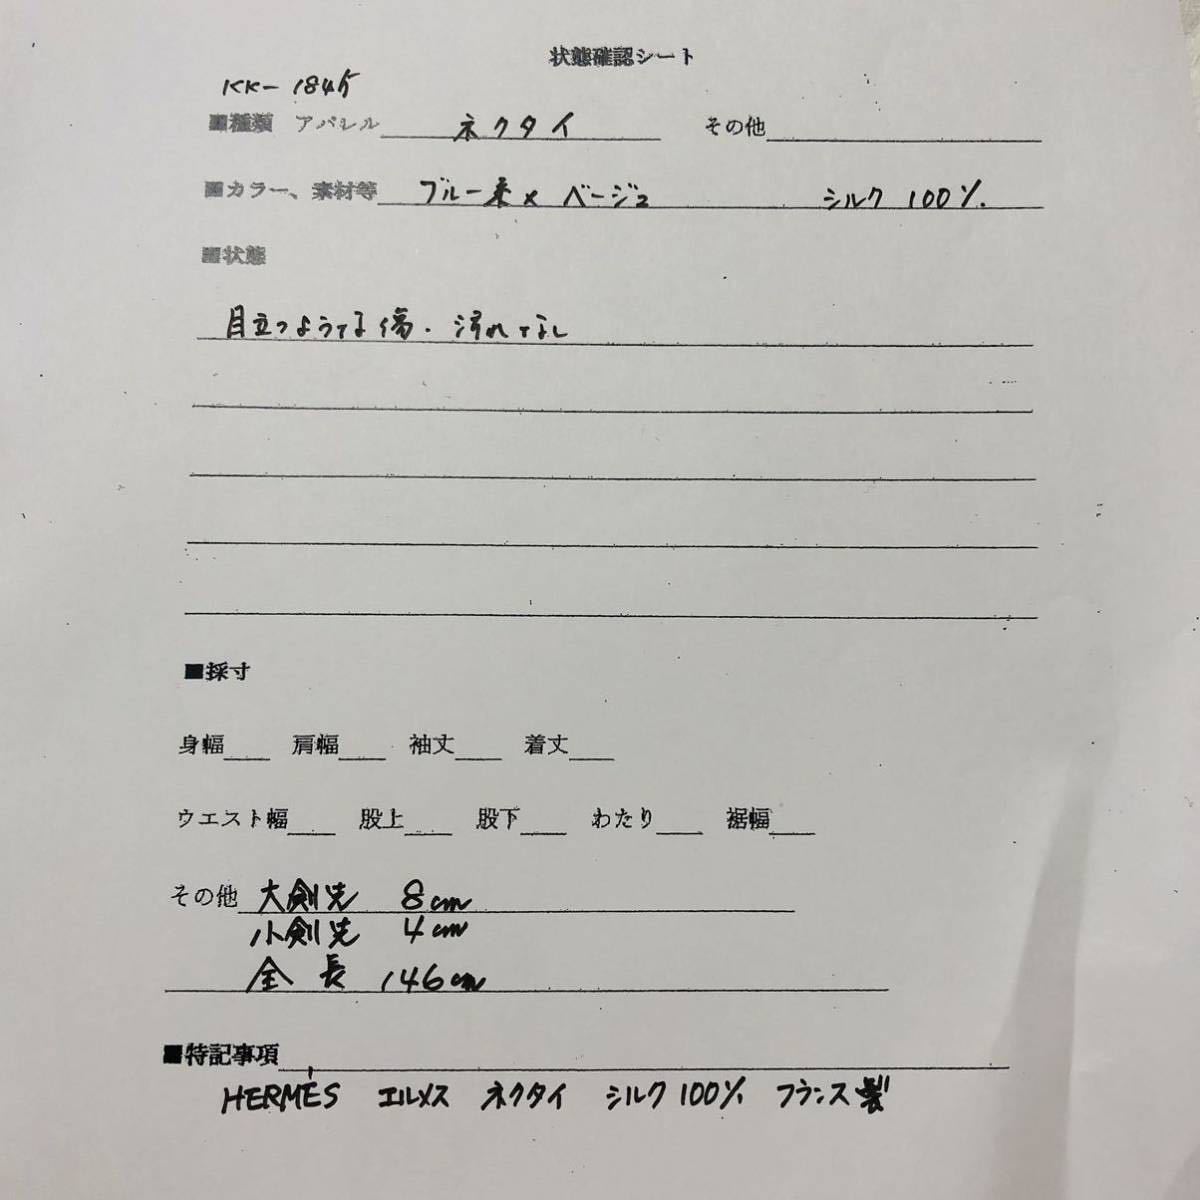 状態確認シート
KK-1845
■種類 アパレル ネクタイ その他
■カラー、素材等 ブルー系×ベージュ シルク 100%
■状態
目立つような傷・汚れなし
■採寸
身幅 肩幅 袖丈 着丈
ウエスト幅 股上 股下 わたり 裾幅
その他 大剣先 8cm
小剣先 4cm
全長 146cm
■特記事項
HERMÉS エルメス ネクタイ シルク100% フランス製